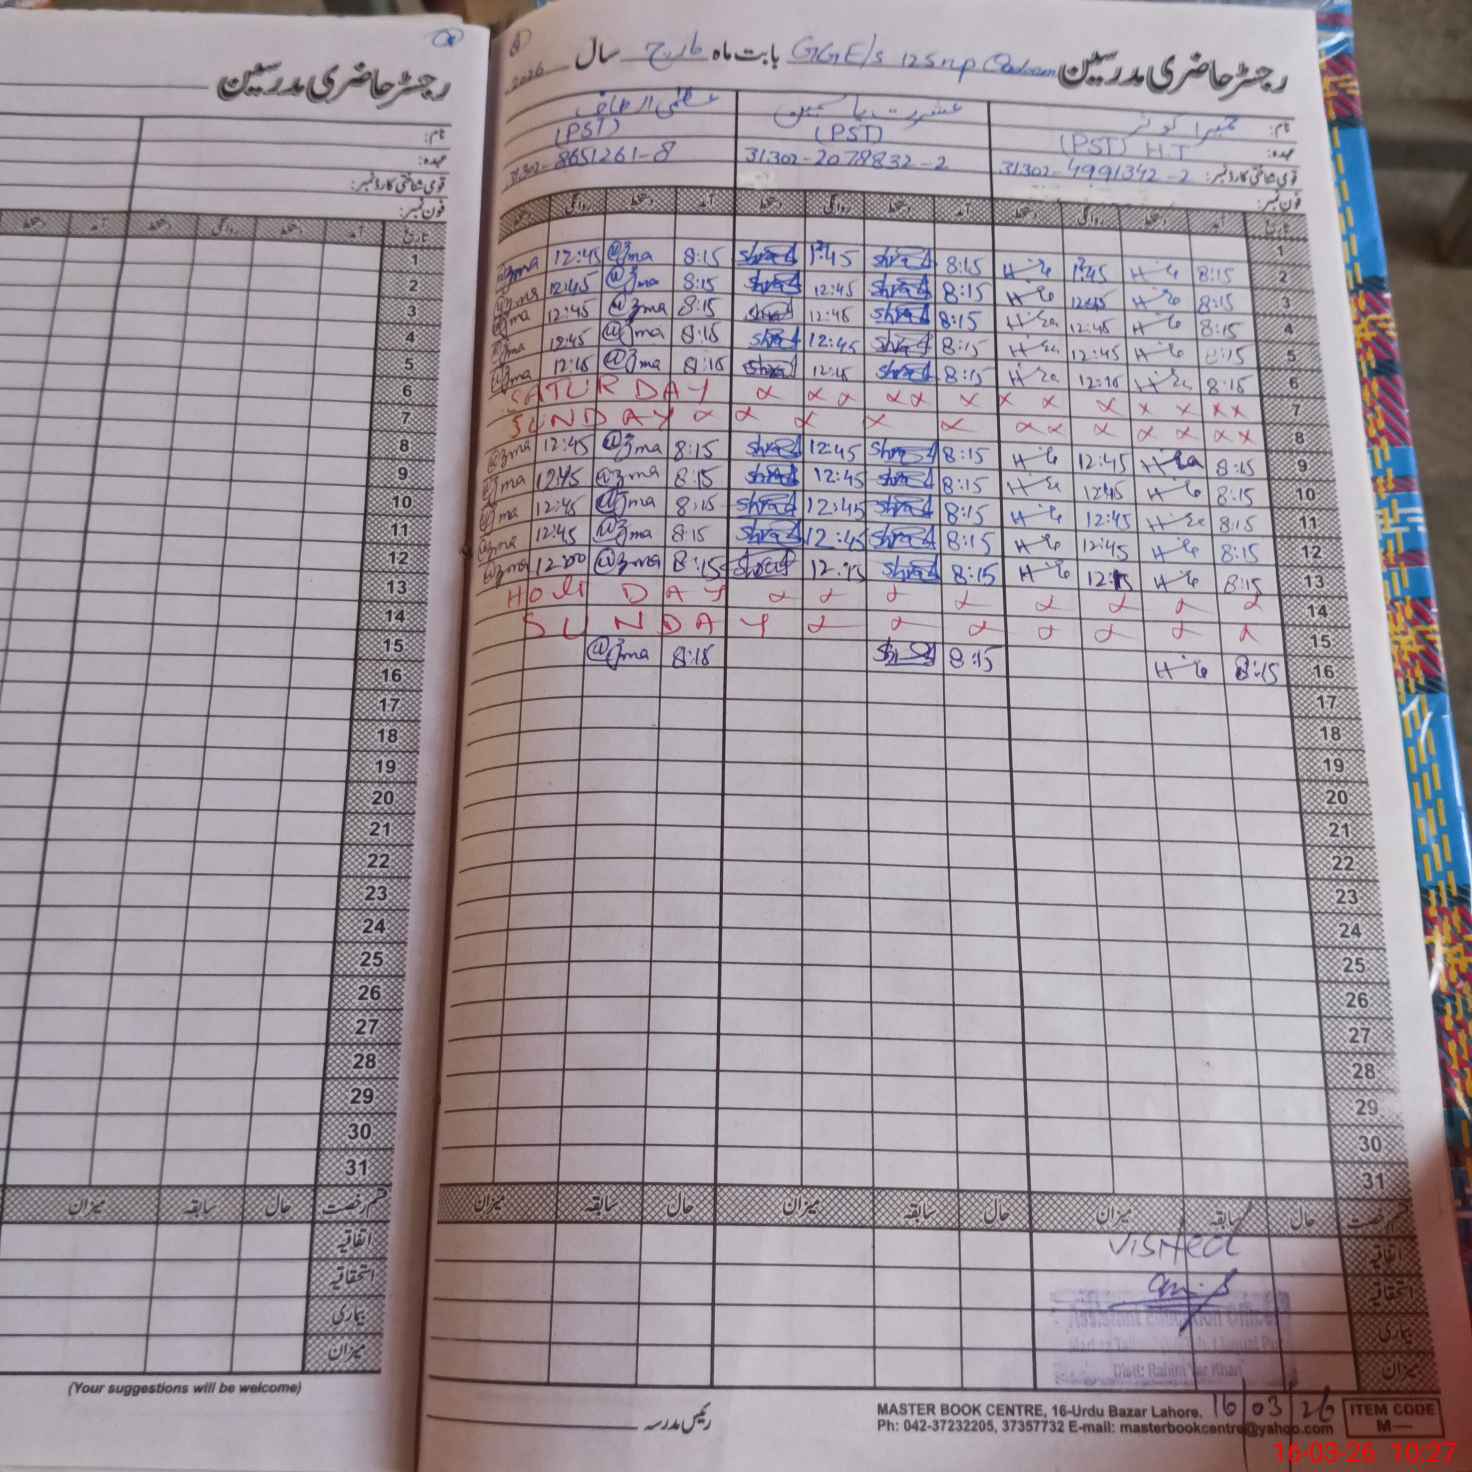 رجسٹر حاضری مدرسین
نام:
عہدہ:
قومی شناختی کارڈ نمبر:
فون نمبر:
تاریخ آمد دستخط روانگی دستخط آمد
1
2
3
4
5
6
7
8
9
10
11
12
13
14
15
16
17
18
19
20
21
22
23
24
25
26
27
28
29
30
31
قسم رخصت حال سابقہ میزان
اتفاقیہ
استحقاقیہ
بیماری
میزان
(Your suggestions will be welcome)
رجسٹر حاضری مدرسین GGE/s 125np بابت ماہ مارچ سال 2026
نام: حمیرا کوثر عشرت یاسمین عظمیٰ الطاف
عہدہ: (PST) H.T (PST) (PST)
قومی شناختی کارڈ نمبر: 31302-4991342-2 31302-2078832-2 31302-8651261-8
فون نمبر:
تاریخ آمد دستخط روانگی دستخط آمد دستخط روانگی دستخط آمد دستخط روانگی دستخط
1
@zma 12:45 @zma 8:15 12:45 8:15 12:45 8:15 2
@zma 12:45 @zma 8:15 12:45 8:15 12:45 8:15 3
@zma 12:45 @zma 8:15 12:45 8:15 12:45 8:15 4
@zma 12:45 @zma 8:15 12:45 8:15 12:45 8:15 5
@zma 12:45 @zma 8:15 12:45 8:15 12:45 8:15 6
SATURDAY 7
SUNDAY 8
@zma 12:45 @zma 8:15 12:45 8:15 12:45 8:15 9
@zma 12:45 @zma 8:15 12:45 8:15 12:45 8:15 10
@zma 12:45 @zma 8:15 12:45 8:15 12:45 8:15 11
@zma 12:45 @zma 8:15 12:45 8:15 12:45 8:15 12
@zma 12:00 @zma 8:15 8:15 8:15 13
HOLI DAY 14
SUNDAY 15
@zma 8:15 8:15 8:15 16
17
18
19
20
21
22
23
24
25
26
27
28
29
30
31
قسم رخصت حال سابقہ میزان حال سابقہ میزان حال سابقہ میزان
اتفاقیہ
Visited
استحقاقیہ
Assistant Education Officer
بیماری
Distt: Rahim Yar Khan
میزان
رئیس مدرسہ
16/03/26
MASTER BOOK CENTRE, 16-Urdu Bazar Lahore.
Ph: 042-37232205, 37357732 E-mail: masterbookcentre@yahoo.com
ITEM CODE
M—
16-03-26 10:27